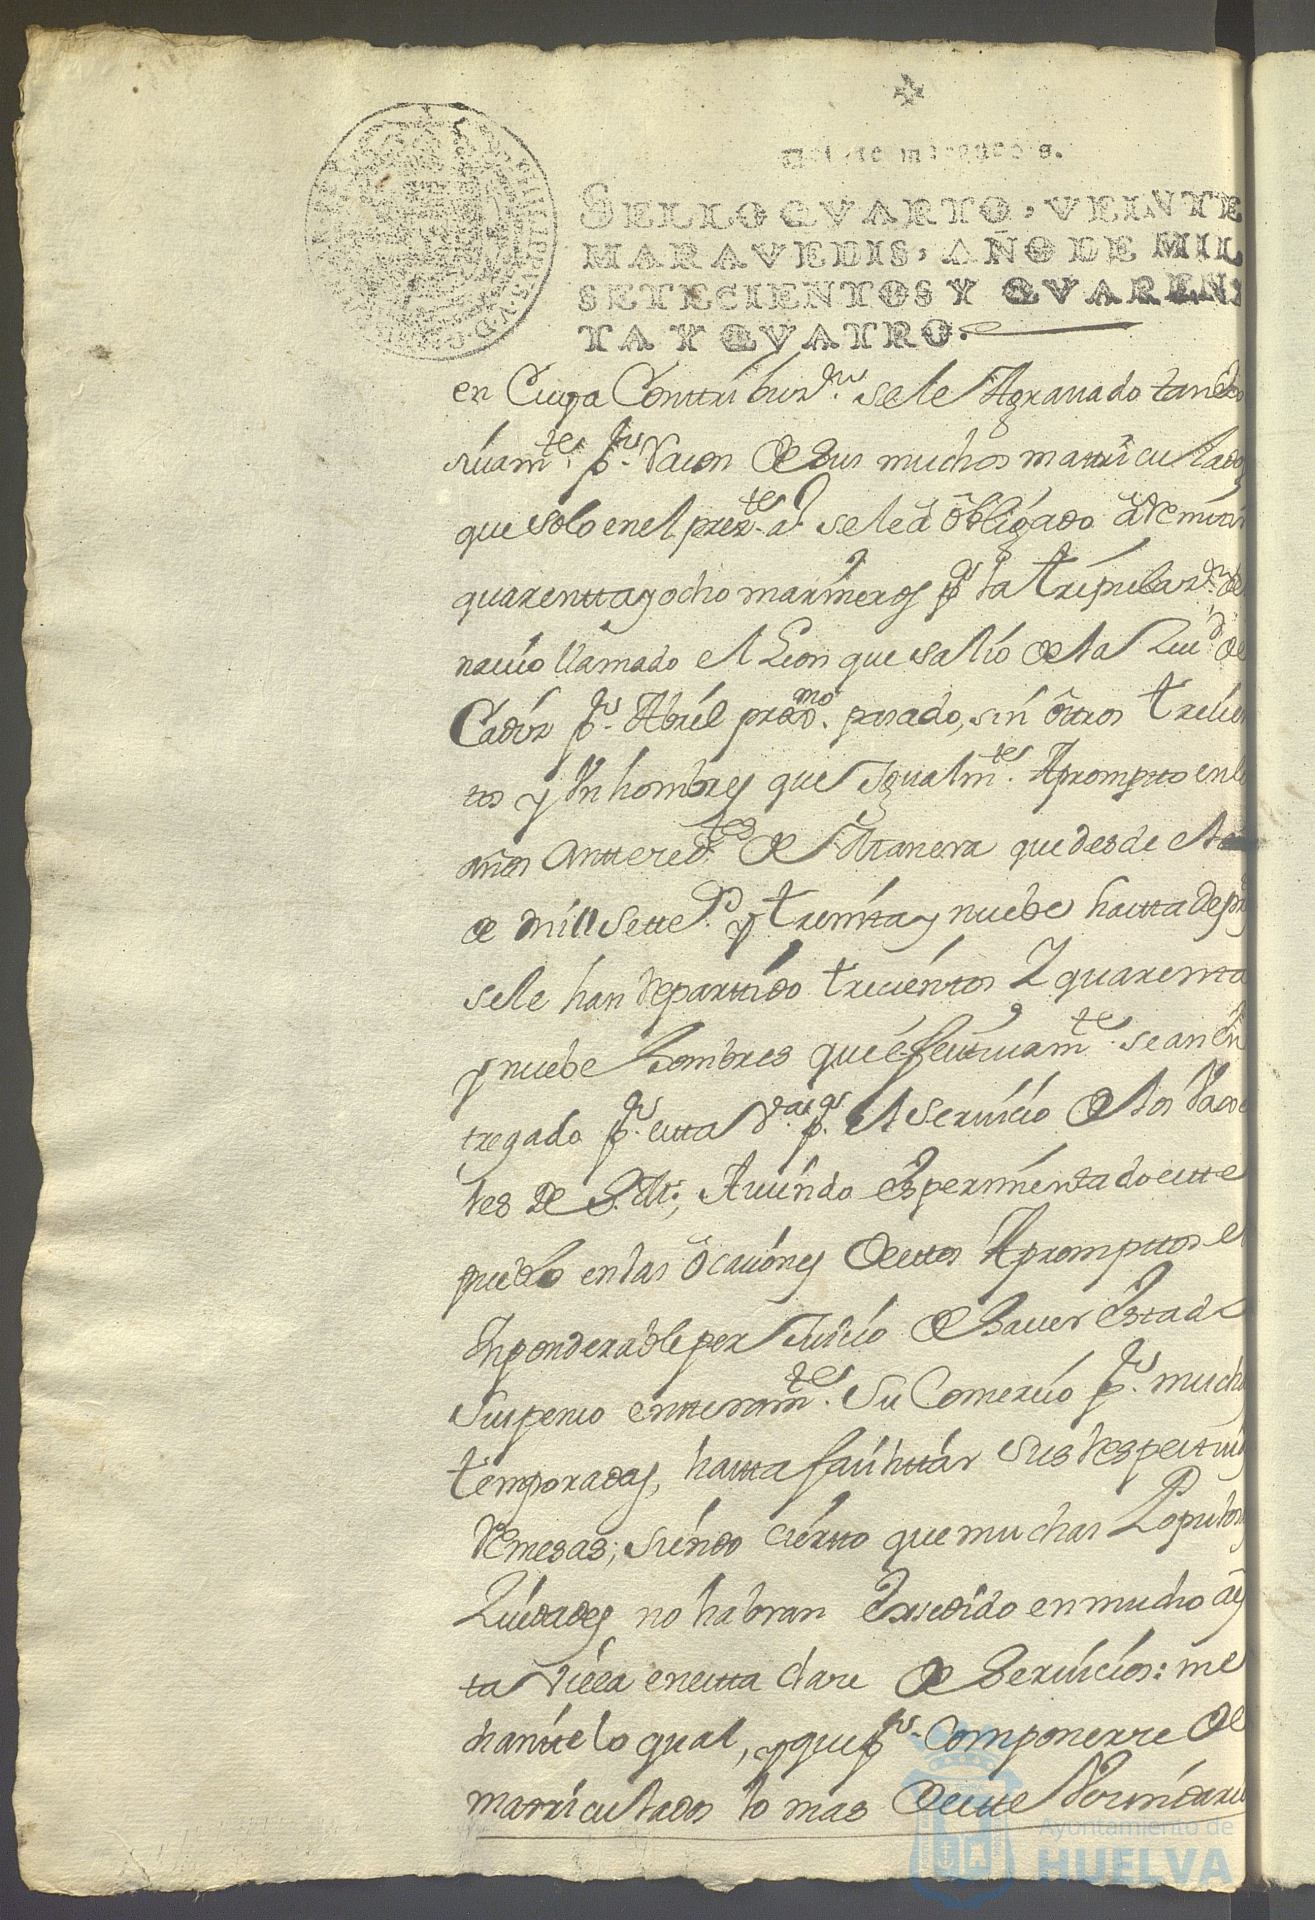 SELLO QVARTO, VEINTE
MARAVEDIS, AÑO DE MIL
SETECIENTOS Y QVAREN
TA Y QVATRO.
en Cuya Conttribuz.on se le Agrauado tan
. p.r Razon de sus muchos mattriculados
que solo en el prez.te a.o se le â obligado â Remitir
quarentta y ocho marineros p.a la tripulaz.on del
nauio llamado el Leon que salio de la Ziu.d de
Cadiz p.r Abril prox.mo pasado, sin ôttros tresien
tos y Un hombres que Igualm.te Apromptto en los
años Anttezed.tes de Manera que desde el
de mill sette.os y treinta y nuebe hasta de pre
se le han Repartido trecientos Y quarenta
y nuebe hombres que efectiuam.te se an en
tregado p.r estta V.a p.a el seruicio de los Vaxe
les de S. M.; Auiendo Esperimentado estte
pueblo en las ôcasiones de esttos Apromptos el
Inponderable perJuicio de hauer Estado
Suspenso entteram.te Su Comercio p.r muchas
temporadas, hastta faciluttar sus respectiuas
Remesas; siendo ciertto que muchas Populosas
Ziudades no habran Exsedido en mucho a es
ta Villa en estta clase de Seruicios: me
diantte lo qual, y que p.r componerse de
mattriculados lo mas de estte Vecindario
Ayuntamiento de
HUELVA